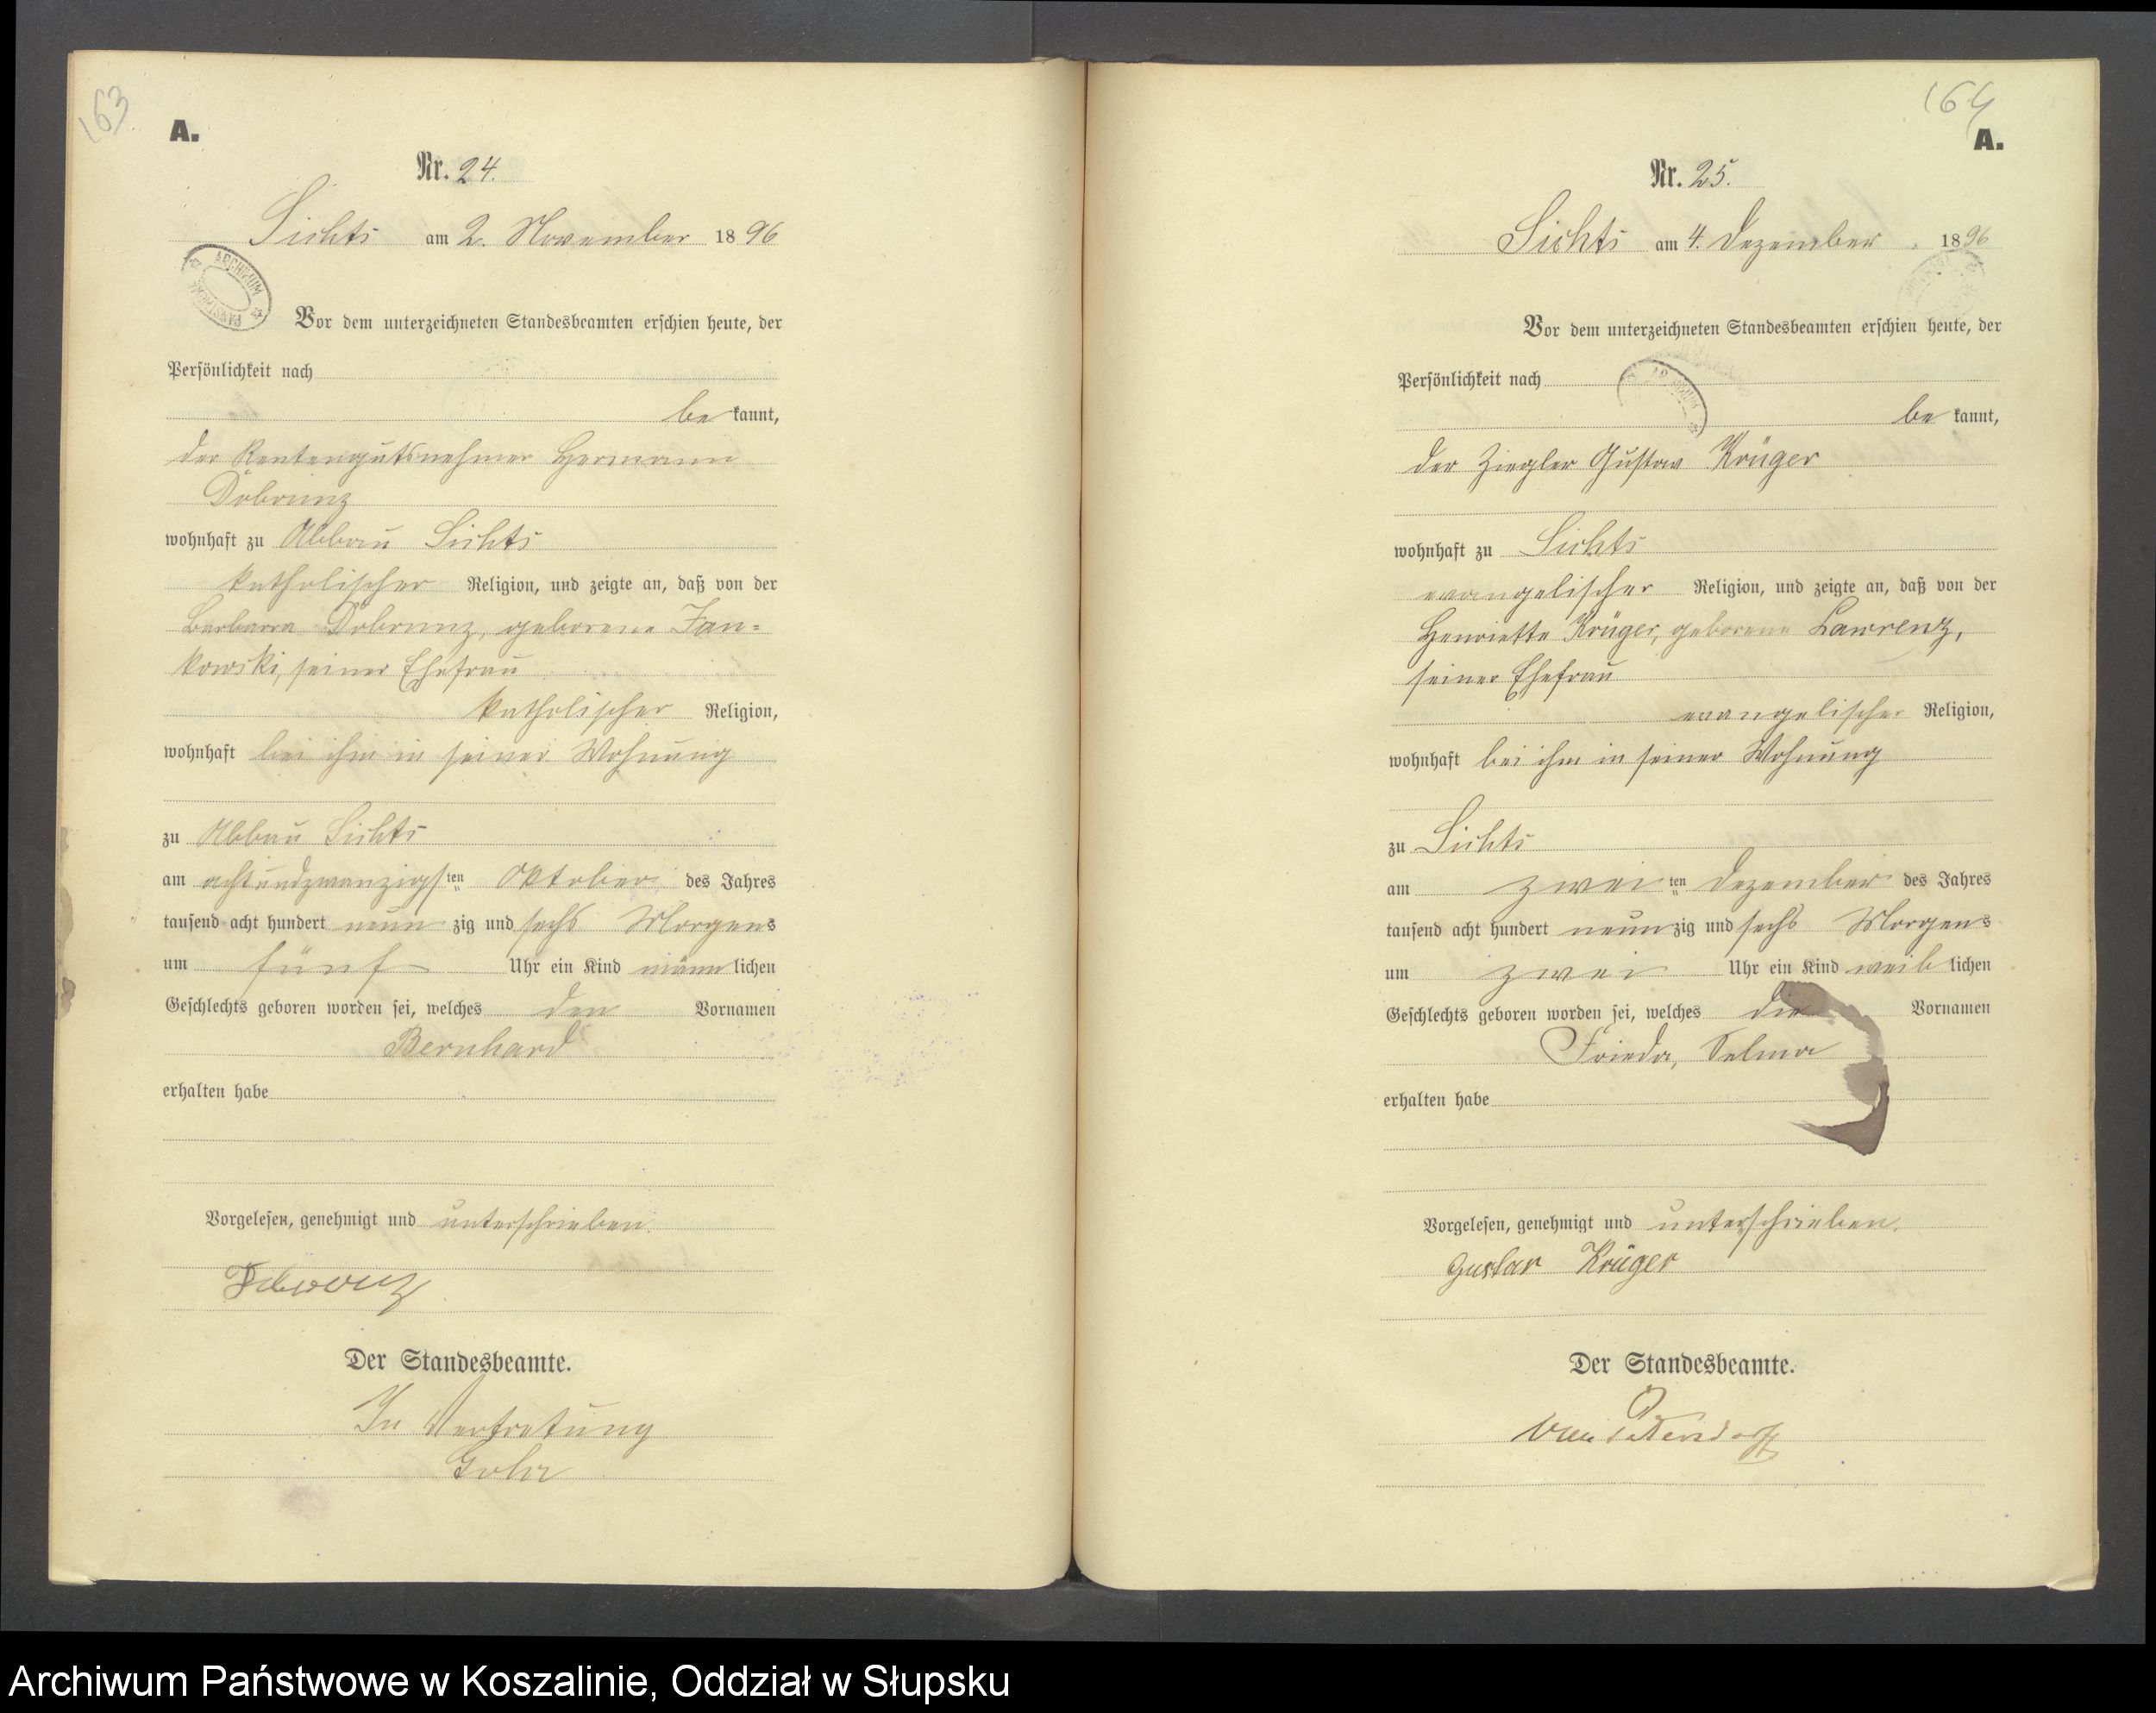 163
A.
Nr. 24.
Sichts am 2. November 1896
ARCHIWUM PAŃSTWOWE
Vor dem unterzeichneten Standesbeamten erschien heute, der
Persönlichkeit nach
be kannt,
der Rentengutsnehmer Hermann
Dobrunz
wohnhaft zu Abbau Sichts
katholischer Religion, und zeigte an, daß von der
Barbara Dobrunz, geborene Jan=
kowski, seiner Ehefrau
katholischer Religion,
wohnhaft bei ihm in seiner Wohnung
zu Abbau Sichts
am achtundzwanzigsten Oktober des Jahres
tausend acht hundert neun zig und sechs Morgens
um fünf Uhr ein Kind männ lichen
Geschlechts geboren worden sei, welches den Vornamen
Bernhard
erhalten habe
Vorgelesen, genehmigt und unterschrieben.
Dobrunz
Der Standesbeamte.
In Vertretung
164
A.
Nr. 25.
Sichts am 4. Dezember 1896
Vor dem unterzeichneten Standesbeamten erschien heute, der
Persönlichkeit nach
be kannt,
der Ziegler Gustav Krüger
wohnhaft zu Sichts
evangelischer Religion, und zeigte an, daß von der
Henriette Krüger, geborene Lawrenz,
seiner Ehefrau
evangelischer Religion,
wohnhaft bei ihm in seiner Wohnung
zu Sichts
am zwei ten Dezember des Jahres
tausend acht hundert neun zig und sechs Morgens
um zwei Uhr ein Kind weib lichen
Geschlechts geboren worden sei, welches die Vornamen
Frieda, Selma
erhalten habe
Vorgelesen, genehmigt und unterschrieben.
Gustav Krüger
Der Standesbeamte.
Archiwum Państwowe w Koszalinie, Oddział w Słupsku